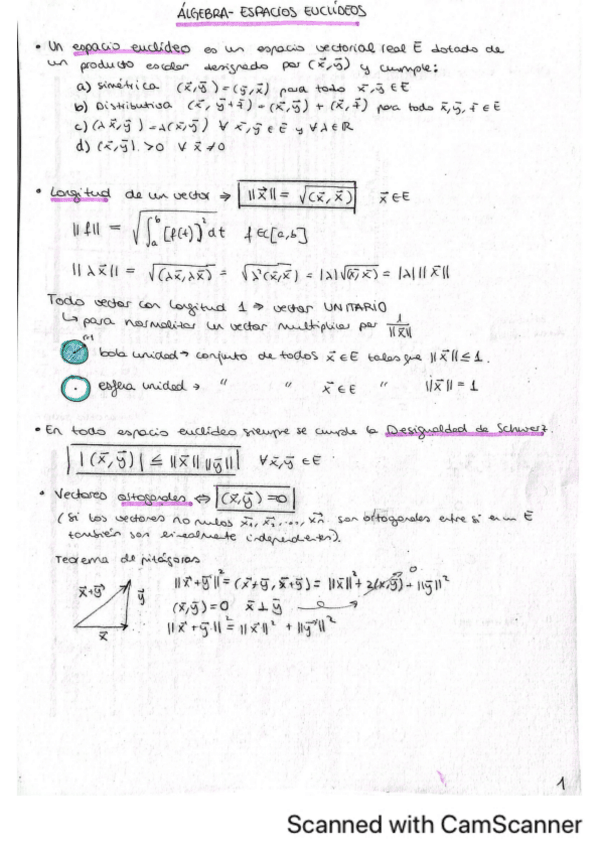 ÁLGEBRA - ESPACIOS EUCLÍDEOS
• Un espacio euclídeo es un espacio vectorial real E dotado de
un producto escalar designado por (x⃗,y⃗) y cumple:
a) simétrica (x⃗,y⃗) = (y⃗,x⃗) para todo x⃗,y⃗ ∈ E
b) Distributiva (x⃗, y⃗+z⃗) = (x⃗,y⃗) + (x⃗,z⃗) para todo x⃗,y⃗,z⃗ ∈ E
c) (λx⃗,y⃗) = λ(x⃗,y⃗) ∀ x⃗,y⃗ ∈ E y ∀λ∈ℝ
d) (x⃗,y⃗) > 0 ∀ x⃗ ≠ 0
• Longitud de un vector → ||x⃗|| = √(x⃗,x⃗) x⃗ ∈ E
||f|| = √∫ₐᵇ [f(t)]² dt f ∈ C[a,b]
||λx⃗|| = √(λx⃗,λx⃗) = √λ²(x⃗,x⃗) = |λ|√(x⃗,x⃗) = |λ| ||x⃗||
Todo vector con longitud 1 → vector UNITARIO
↳ para normalizar un vector multiplicar por 1/||x⃗||
bola unidad → conjunto de todos x⃗ ∈ E tales que ||x⃗|| ≤ 1.
esfera unidad → " " x⃗ ∈ E " ||x⃗|| = 1
• En todo espacio euclídeo siempre se cumple la Desigualdad de Schwerz.
|(x⃗,y⃗)| ≤ ||x⃗|| ||y⃗|| ∀x⃗,y⃗ ∈ E
• Vectores ortogonales ⇔ (x⃗,y⃗) = 0
(Si los vectores no nulos x⃗₁, x⃗₂, ..., x⃗ₙ son ortogonales entre sí en un E
también son linealmente independientes).
Teorema de pitágoras
x⃗+y⃗ y⃗ x⃗
||x⃗+y⃗||² = (x⃗+y⃗, x⃗+y⃗) = ||x⃗||² + 2(x⃗,y⃗) + ||y⃗||² 0
(x⃗,y⃗) = 0 x⃗ ⊥ y⃗
||x⃗+y⃗||² = ||x⃗||² + ||y⃗||²
1
Scanned with CamScanner